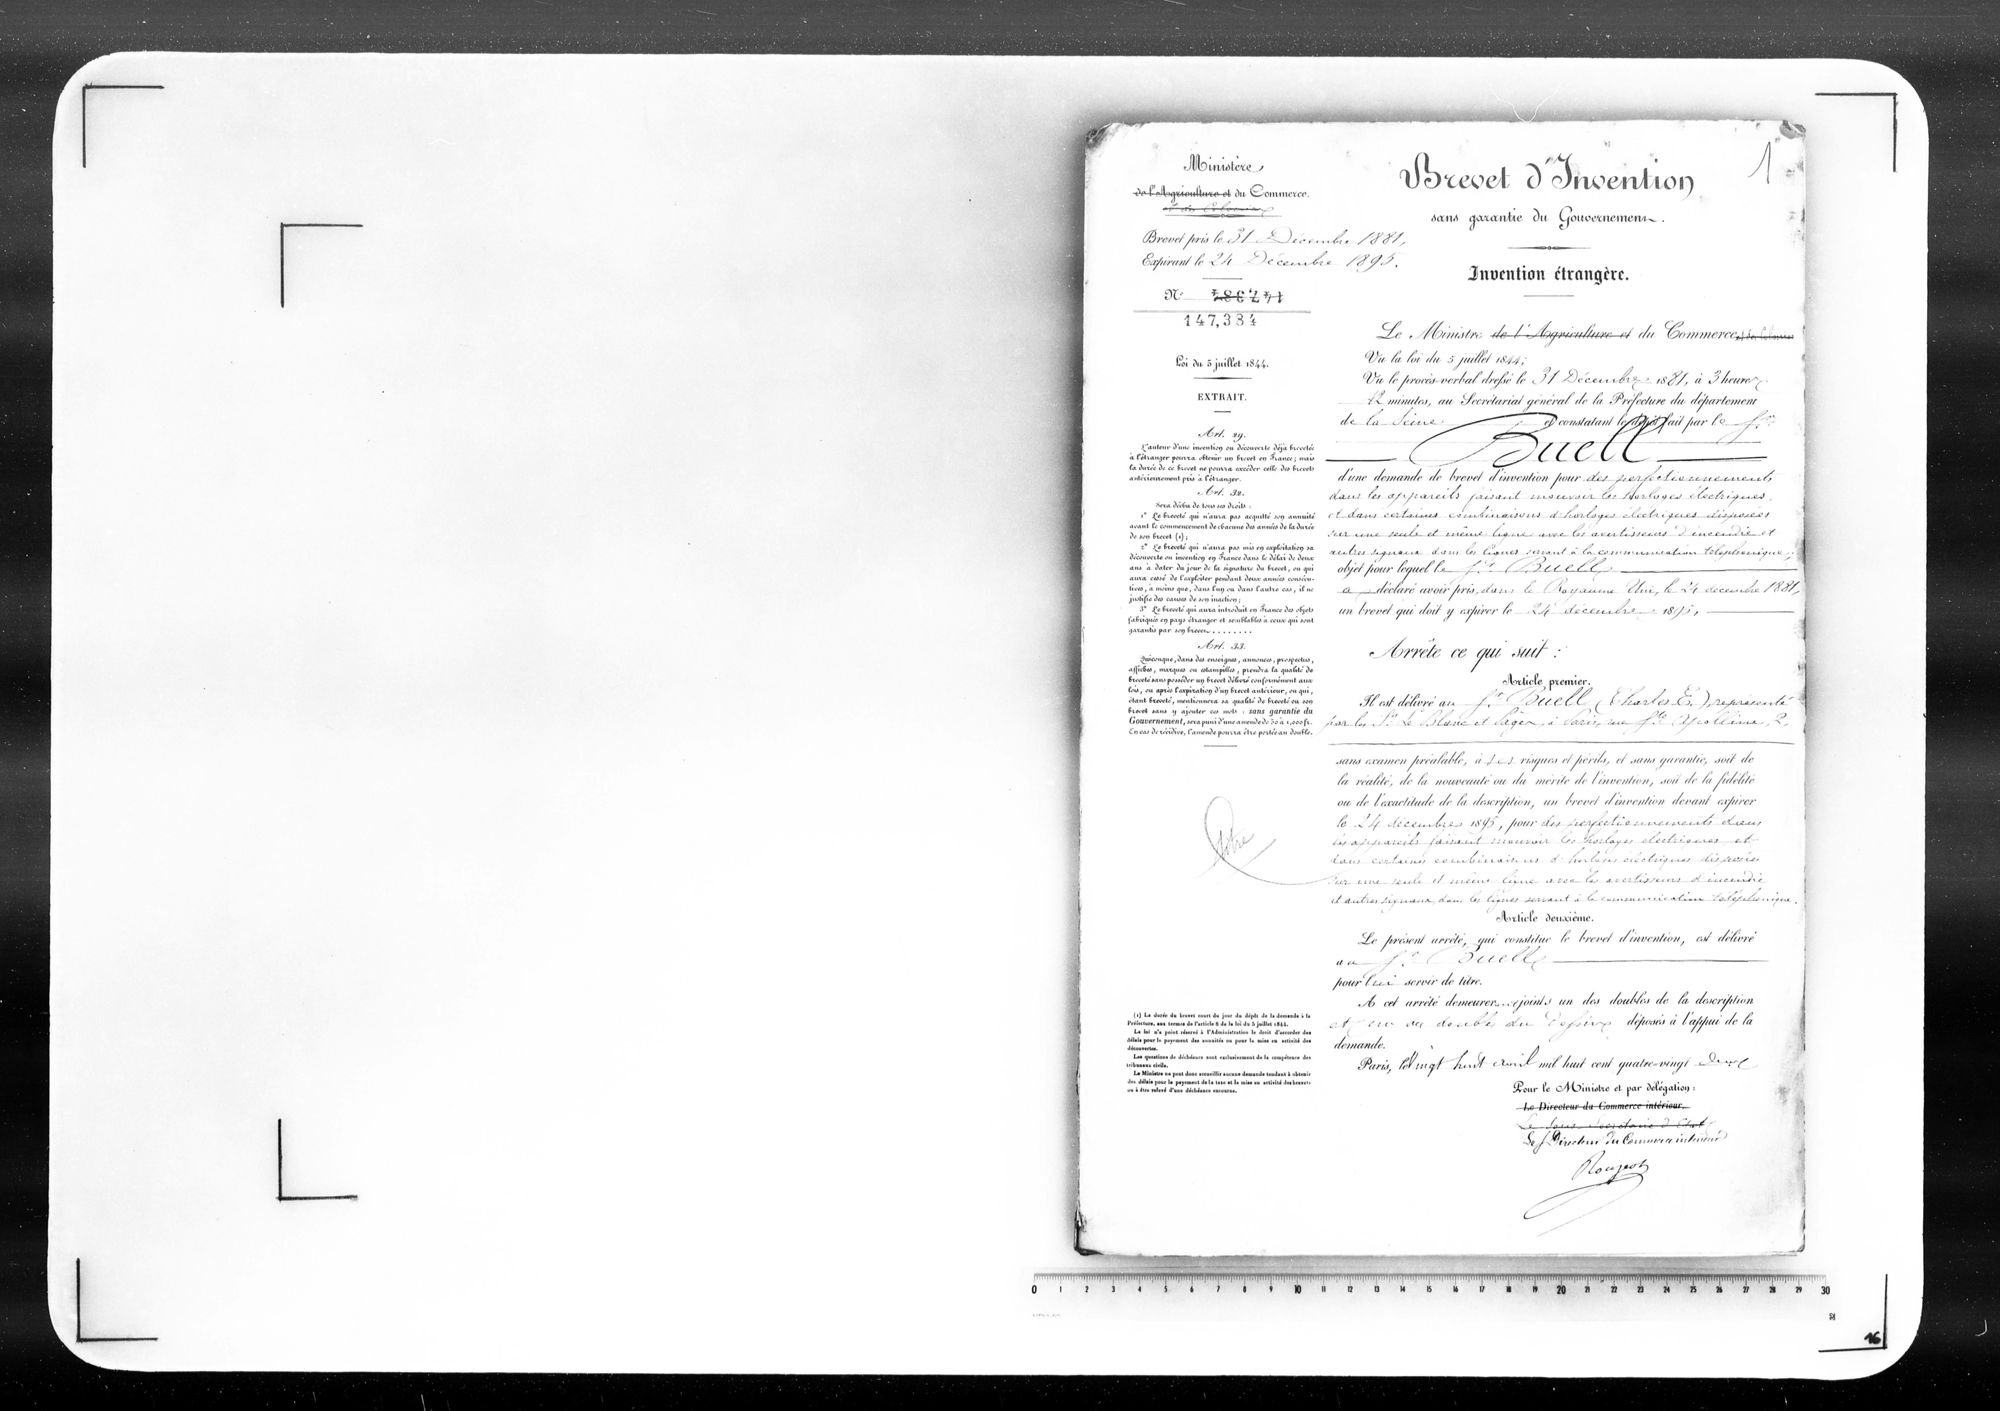 1
Ministère
de l'Agriculture et du Commerce.
et des Colonies
Brevet pris le 31 Décembre 1881,
Expirant le 24 Décembre 1895.
N°
147,384
Loi du 5 juillet 1844.
EXTRAIT.
Art. 29.
L'auteur d'une invention ou découverte déjà brevetée
à l'étranger pourra obtenir un brevet en France; mais
la durée de ce brevet ne pourra excéder celle des brevets
antérieurement pris à l'étranger.
Art. 32.
Sera déchu de tous ses droits :
1° Le breveté qui n'aura pas acquitté son annuité
avant le commencement de chacune des années de la durée
de son brevet (1);
2° Le breveté qui n'aura pas mis en exploitation sa
découverte ou invention en France dans le délai de deux
ans à dater du jour de la signature du brevet, ou qui
aura cessé de l'exploiter pendant deux années consécu-
tives, à moins que, dans l'un ou dans l'autre cas, il ne
justifie des causes de son inaction;
3° Le breveté qui aura introduit en France des objets
fabriqués en pays étranger et semblables à ceux qui sont
garantis par son brevet........
Art. 33.
Quiconque, dans des enseignes, annonces, prospectus,
affiches, marques ou estampilles, prendra la qualité de
breveté sans posséder un brevet délivré conformément aux
lois, ou après l'expiration d'un brevet antérieur, ou qui,
étant breveté, mentionnera sa qualité de breveté ou son
brevet sans y ajouter ces mots : sans garantie du
Gouvernement, sera puni d'une amende de 50 à 1,000 fr.
En cas de récidive, l'amende pourra être portée au double.
(1) La durée du brevet court du jour du dépôt de la demande à la
Préfecture, aux termes de l'article 8 de la loi du 5 juillet 1844.
La loi n'a point réservé à l'Administration le droit d'accorder des
délais pour le payement des annuités ou pour la mise en activité des
découvertes.
Les questions de déchéance sont exclusivement de la compétence des
tribunaux civils.
Le Ministre ne peut donc accueillir aucune demande tendant à obtenir
des délais pour le payement de la taxe et la mise en activité des brevets
ou à être relevé d'une déchéance encourue.
Brevet d'Invention
sans garantie du Gouvernement.
Invention étrangère.
Le Ministre de l'Agriculture et du Commerce et des Colonies
Vu la loi du 5 juillet 1844;
Vu le procès-verbal dressé le 31 Décembre 1881, à 3 heures
12 minutes, au Secrétariat général de la Préfecture du département
de la Seine et constatant le dépôt fait par le Sr
Buell
d'une demande de brevet d'invention pour des perfectionnements
dans les appareils faisant mouvoir les horloges électriques,
et dans certaines combinaisons d'horloges électriques disposées
sur une seule et même ligne avec les avertisseurs d'incendie et
autres signaux dans les lignes servant à la communication téléphonique;
objet pour lequel le Sr Buell
a déclaré avoir pris, dans le Royaume Uni, le 24 décembre 1881,
un brevet qui doit y expirer le 24 décembre 1895,
Arrête ce qui suit :
Article premier.
Il est délivré au Sr Buell (Charles E.), représenté
par les Srs Le Blanc et à Paris, rue Ste Apolline, 2,
sans examen préalable, à ses risques et périls, et sans garantie, soit de
la réalité, de la nouveauté ou du mérite de l'invention, soit de la fidélité
ou de l'exactitude de la description, un brevet d'invention devant expirer
le 24 décembre 1895, pour des perfectionnements dans
les appareils faisant mouvoir les horloges électriques et
dans certaines combinaisons d'horloges électriques disposées
sur une seule et même ligne avec les avertisseurs d'incendie
et autres signaux, dans les lignes servant à la communication téléphonique.
Article deuxième.
Le présent arrêté, qui constitue le brevet d'invention, est délivré
au Sr Buell
pour lui servir de titre.
A cet arrêté demeurer joints un des doubles de la description
et un des doubles du dessin déposés à l'appui de la
demande.
Paris, le vingt huit avril mil huit cent quatre-vingt deux
Pour le Ministre et par délégation :
Le Directeur du Commerce intérieur,
Le Sous Secrétaire d'Etat
Le Directeur du Commerce intérieur
0 1 2 3 4 5 6 7 8 9 10 11 12 13 14 15 16 17 18 19 20 21 22 23 24 25 26 27 28 29 30
16